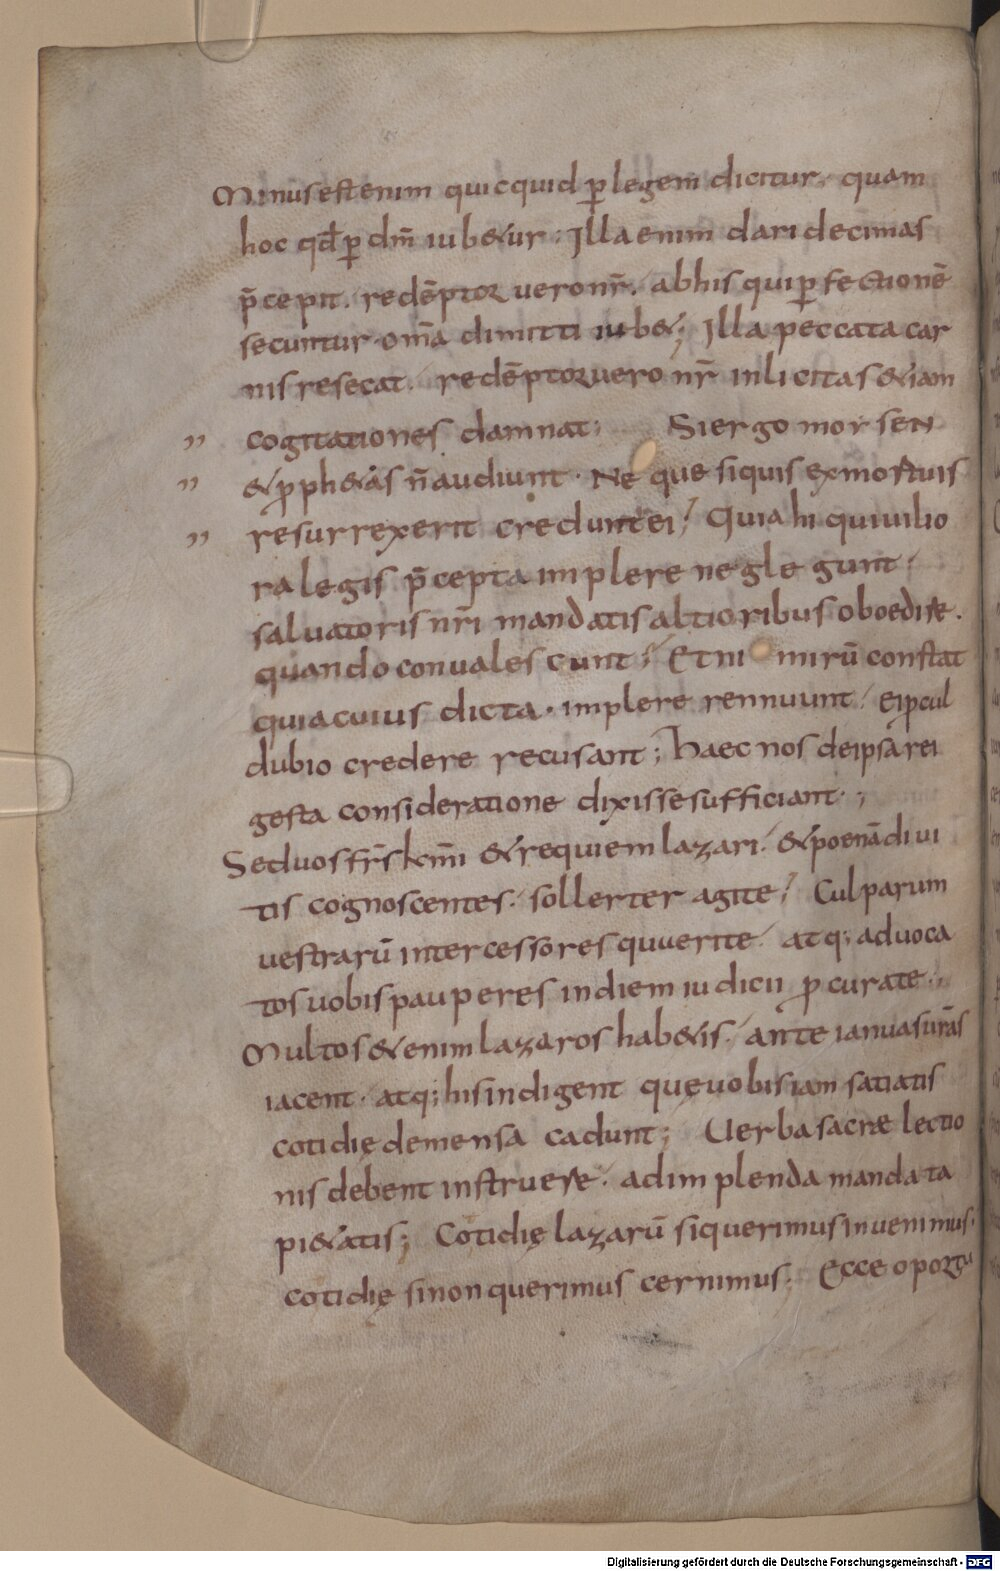 Minus est enim quicquid p̲ legem dicitur, quam
hoc qđ p̲ dm̄ iub&ur; Illa enim dari decimas
p̄cepit. redēptor vero nr̄. ab his qui p̲fectionē
secuntur om̄a dimitti iub&; Illa peccata car
nis resecat. redēptor vero nr̄ inlicitas &iam
cogitationes damnat; Si ergo morsen
& pph&as n̄ audiunt. Neque si quis ex mortuis
resurrexerit credunt ei; Quia hi qui uilio
ra legis p̄cepta implere neglegunt.
saluatoris nr̄i mandatis altioribus oboedire.
quando conualescunt; Et ni mirū constat
quia cuius dicta. implere rennuunt. ei pcul
dubio credere recusant; Haec nos de ipsa rei
gesta consideratione dixisse sufficiant;
Sed uos fr̄s km̄i & requiem lazari. & poenā diui
tis cognoscentes. sollerter agite; Culparum
uestrarū intercessores quverite. atq; aduoca
tos uobis pauperes in diem iudicii pcurate.
Multos &enim lazaros hab&is. ante ianuas ur̄as
iacent. atq; his indigent quę uobis iam satiatis
cotidię de mensa cadunt; Uerba sacrae lectio
nis debent instruere. ad implenda mandata
pi&atis; Cotidię lazarū si querimus inuenimus.
cotidię si non querimus cernimus; Ecce oportu
Digitalisierung gefördert durch die Deutsche Forschungsgemeinschaft - DFG